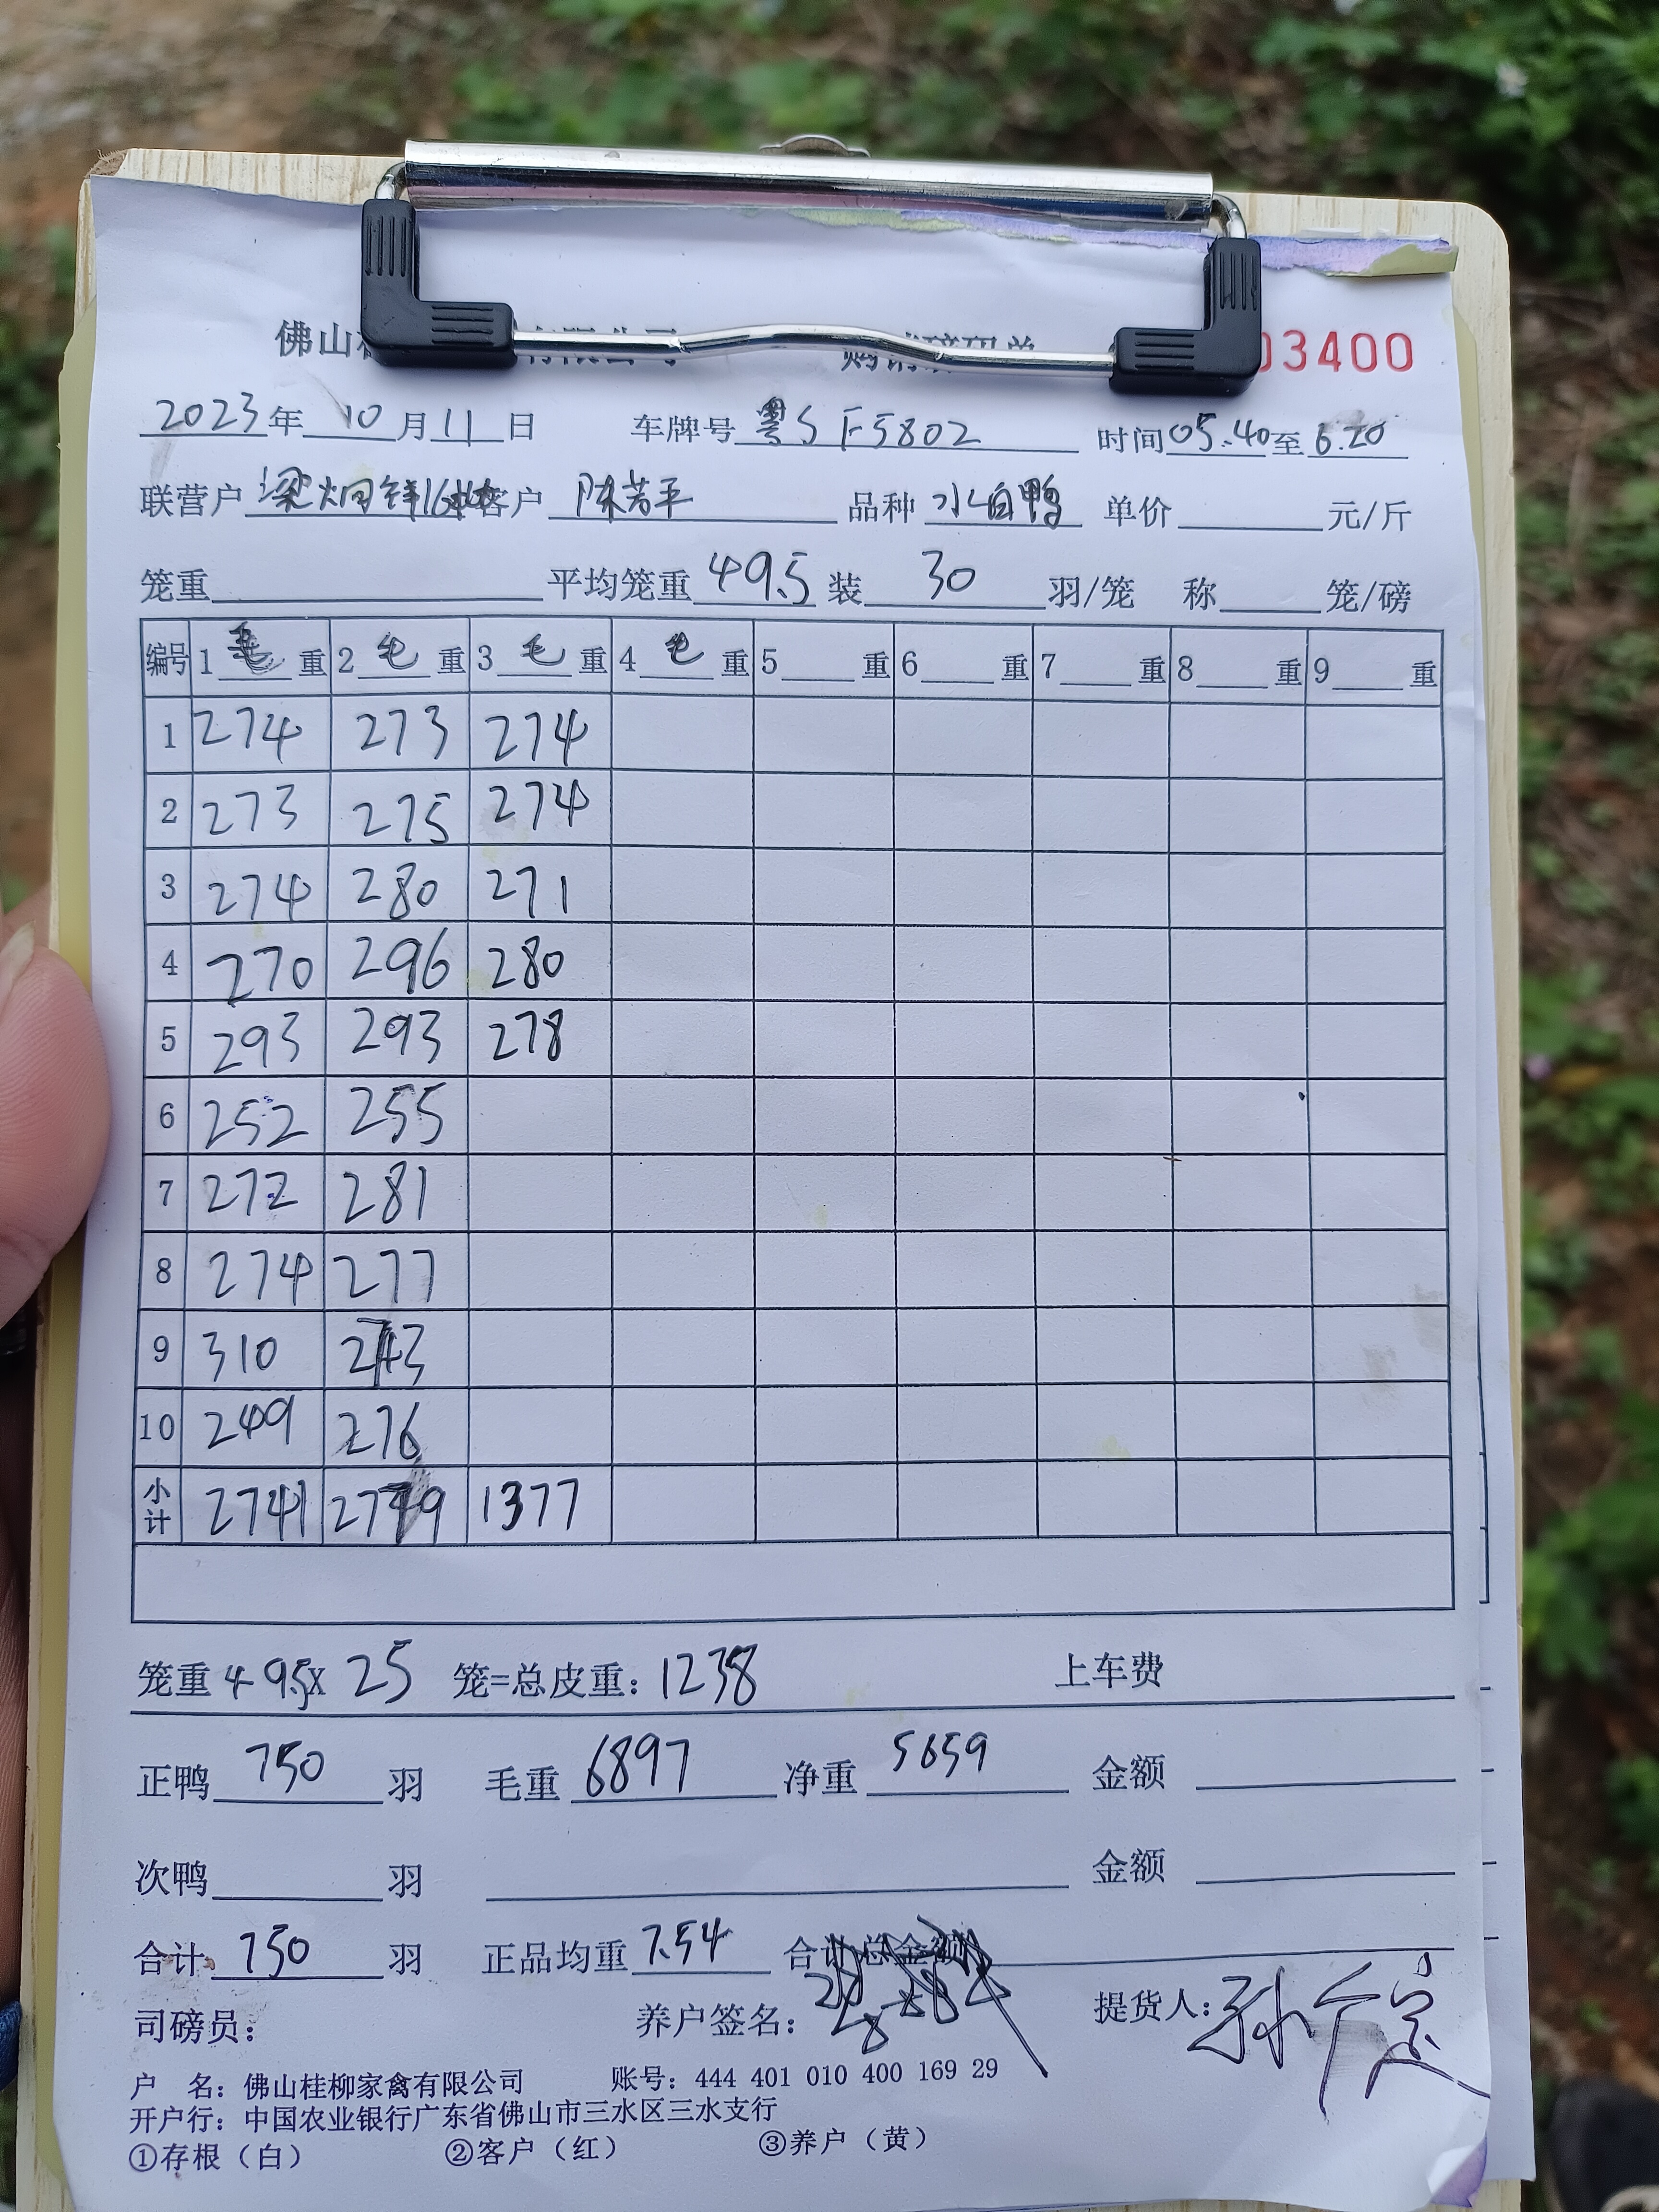 佛山 有限公司 购销磅码单 03400
2023年 10 月 11 日 车牌号 粤S F5802 时间 05.40 至 6.20
联营户 梁炯 16 客户 陈芳平 品种 水白鸭 单价 元/斤
笼重 平均笼重 49.5 装 30 羽/笼 称 笼/磅
编号 1 毛 重 2 毛 重 3 毛 重 4 毛 重 5 重 6 重 7 重 8 重 9 重
1 274 273 274
2 273 275 274
3 274 280 271
4 270 296 280
5 293 293 278
6 252 255
7 272 281
8 274 277
9 310 273
10 249 276
小计 2741 2779 1377
笼重 49.5X 25 笼=总皮重：1238 上车费
正鸭 750 羽 毛重 6897 净重 5659 金额
次鸭 羽 金额
合计 750 羽 正品均重 7.54 合计总金额
司磅员： 养户签名： 提货人：
户 名：佛山桂柳家禽有限公司 账号：444 401 010 400 169 29
开户行：中国农业银行广东省佛山市三水区三水支行
①存根（白） ②客户（红） ③养户（黄）